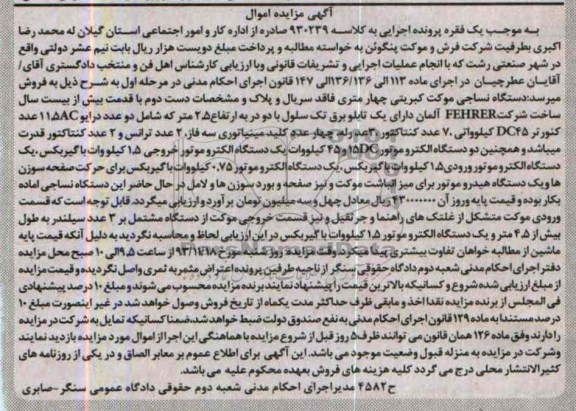 آگهی مزایده اموال
به موجب یک فقره پرونده اجرایی به کلاسه ۹۳۰۲۳۹ صادره از اداره کار و امور اجتماعی استان گیلان له محمد رضا
اکبری بطرفیت شرکت فرش و موکت پنگوئن به خواسته مطالبه و پرداخت مبلغ دویست هزار ریال بابت نیم عشر دولتی واقع
در شهر صنعتی رشت که با انجام عملیات اجرایی و تشریفات قانونی وبا ارزیابی کارشناس اهل فن و منتخب دادگستری آقای/
آقایان عطرچیان در اجرای ماده ۱۱۳ الی ۱۳۶/۱۳۶الی ۱۴۷ قانون اجرای احکام مدنی در مرحله اول به شرح ذیل به فروش
میرسد:دستگاه نساجی موکت کبریتی چهار متری فاقد سریال و پلاک و مشخصات دست دوم با قدمت بیش از بیست سال
ساخت شرکت FEHRER آلمان دارای یک تابلو برق تک سلول با دو در به ارتفاع ۲.۵ متر که شامل دو عدد درایو ۱۱.۵AC عدد
کنور تر DC۴۵ کیلوواتی ،۷ عدد کنتاکتور و ۱۳ رله، چهار عدد کلید مینیاتوری سه فاز، ۲ عدد ترانس و ۲ عدد کنتاکتور قدرت
میباشد و همچنین دو دستگاه الکترو موتور ۱۵DC و۴۵ کیلووات یک دستگاه الکترو موتور خروجی ۱.۵ کیلو وات با گیربکس ،یک
دستگاه الکترو موتور ورودی ۱.۵ کیلووات با گیربکس ،یک دستگاه الکترو موتور ۰.۷۵ کیلووات با گیربکس برای حرکت صفحه سوزن
ها ویک دستگاه هیدرو موتور برای میز انباشت موکت و نیز صفحه و بورد سوزن ها و لامل در حال حاضر این دستگاه نساجی اماده
بکار بوده و قیمت پایه وروز آن ۴۳۰۰۰۰۰۰۰ ریال معادل چهل وسه میلیون تومان برآورد و ارزیابی میگردد. قابل توجه است که قسمت
ورودی موکت متشکل از غلتک های راهنما و جر ثقیل و نیز قسمت خروجی موکت از دستگاه مشتمل بر ۳ عدد سیلندر به طول
بیش از ۴.۵ متر و یک دستگاه الکترو موتور ۱.۵ کیلووات با گیربکس در این ارزیابی لحاظ و محاسبه نگردید به دلیل آنکه قیمت پایه
ماشین از مطالبه خواهان تفاوت بیشتری پیدا می کرد. وقت مزایده روز شنبه مورخ ۹۳/۱۲/۱۸ از ساعت ۹.۵ الی ۱۰ صبح محل مزایده
دفتر اجرای احکام مدنی شعبه دوم دادگاه حقوقی سنگر از ناحیه طرفین پرونده اعتراض مثمر به ثمری واصل نگردیده و قیمت مزایده
از مبلغ ارزیابی شده شروع و کسانیکه بالاترین قیمت را پیشنهاد نمایند برنده مزایده محسوب می شوند و مبلغ ۱۰ درصد پیشنهادی
فی المجلس از برنده مزایده نقدا اخذ و مابقی ظرف حداکثر مدت یکماه از تاریخ فروش وصول خواهد شد در غیر اینصورت مبلغ ۱۰
درصد مستندا به ماده ۱۲۹ قانون اجرای احکام مدنی به نفع صندوق دولت ضبط خواهد شد. ضمنا کسانیکه تمایل به شرکت در مزایده
را دارند وفق ماده ۱۲۶ همان قانون می توانند ظرف ۵ روز قبل از شروع مزایده با هماهنگی این اجرا از اموال مورد مزایده بازدید نمایند
وشرکت در مزایده به منزله قبول وضعیت موجود می باشد. این آگهی برای اطلاع عموم بر معابر الصاق و در یکی از روزنامه های
کثیر الانتشار محلی درج می گردد کلیه هزینه های فروش بعهده محکوم علیه می باشد.
ح۴۵۸۲ مدیر اجرای احکام مدنی شعبه دوم حقوقی دادگاه عمومی سنگر-صابری